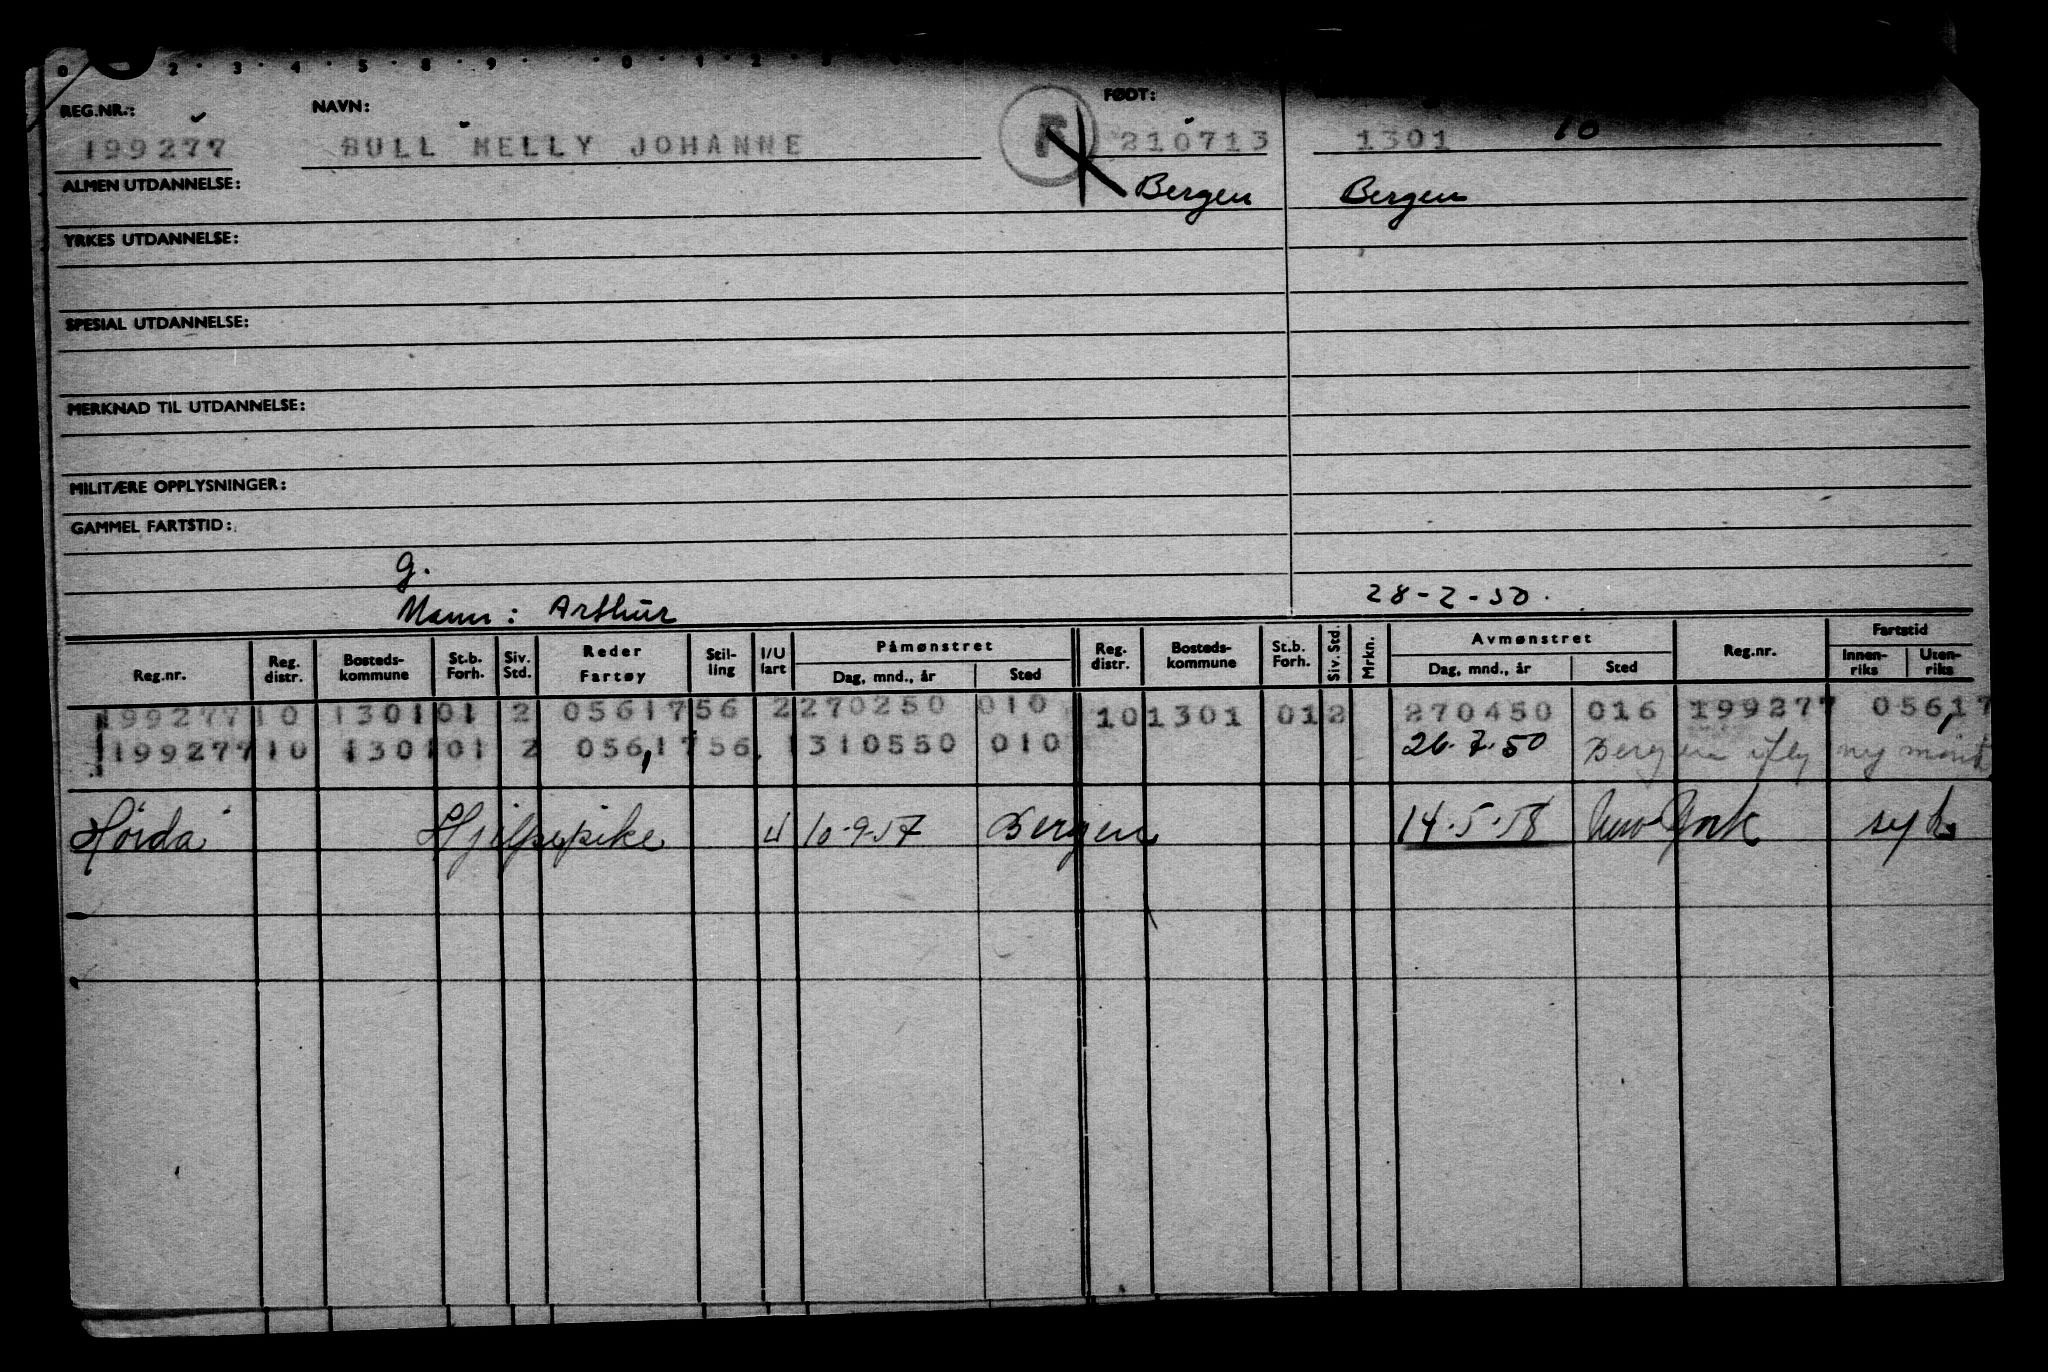 REG.NR.: NAVN: FØDT:
199277 BULL NELLY JOHANNE F 210713 1301 10
ALMEN UTDANNELSE: Bergen Bergen
YRKES UTDANNELSE:
SPESIAL UTDANNELSE:
MERKNAD TIL UTDANNELSE:
MILITÆRE OPPLYSNINGER:
GAMMEL FARTSTID:
g.
Mann: Arthur 28-2-50.
Reg.nr. Reg. distr. Bosteds-kommune St.b. Forh. Siv. Std. Reder Fartøy Stil-ling I/U fart Påmønstret Dag, mnd., år Sted Reg. distr. Bosteds-kommune St.b. Forh. Siv. Std. Mrkn. Avmønstret Dag, mnd., år Sted Reg.nr. Fartstid Innen-riks Uten-riks
199277 10 1301 01 2 05617 56 2 270250 010 10 1301 01 2 270450 016 199277 056,17
199277 10 1301 01 2 056,17 56 1 310550 010 26.7.50 Bergen ny mønst
Horda Hjelpepike U 10.9.57 Bergen 14.5.58 New York syk